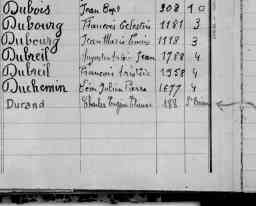 Dubois Jean Bapt 208 10
Dubourg Francois Celestin 1181 3
Dubourg Jean Marie 1118 3
Dubreil Jean 1788 4
Dubreil Francois 1958 4
Duchemin Léon Julien Pierre 1677 4
Durand Charles Eugène 188